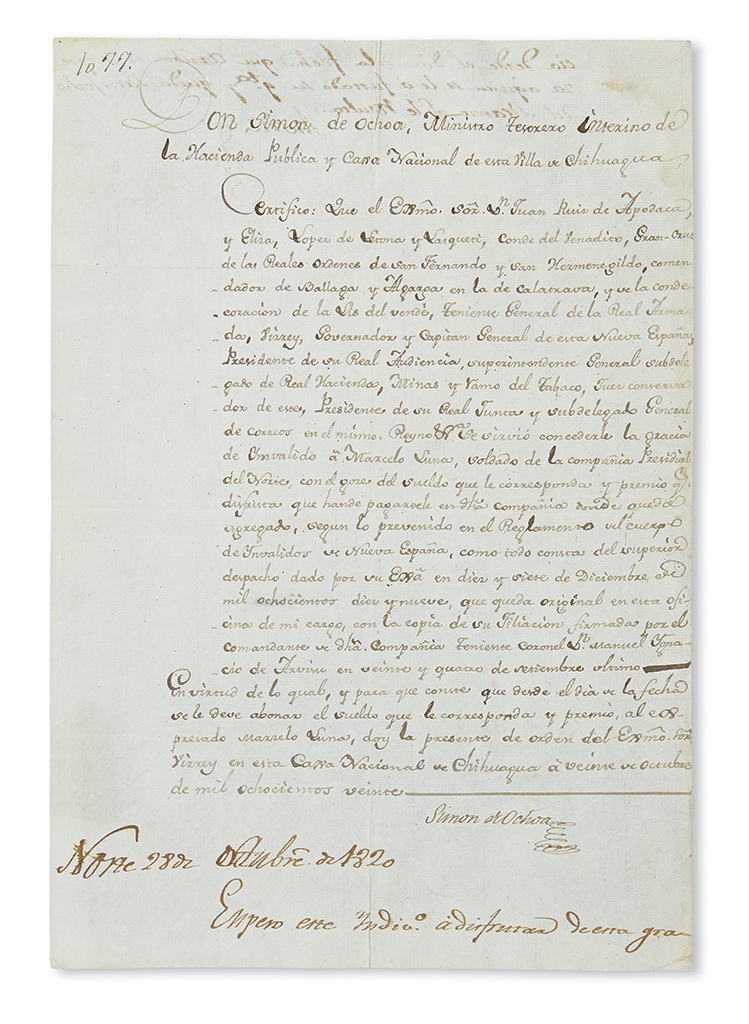 1077.
Don Simon de Ochoa, Ministro Tesorero interino de
la Hacienda Publica y Caxa Nacional de esta Villa de Chihuagua,
Certifico: Que el Exmô. Sor. Dn. Juan Ruis de Apodaca,
y Eliza, Lopes de Letona y Lasqueti, Conde del Venadito, Gran-Crus
de las Reales Ordenes de San Fernando y San Hermenegildo, comen
-dador de Ballaga y Algarga en la de Calatrava, y de la conde
-coracion de la Lis del vendé, Teniente General de la Real Arma
-da, Virrey, Governador y Capitan General de esta Nueva España,
Presidente de su Real Audiencia, superintendente General subdele
-gado de Real Hacienda, Minas y Ramo del Tabaco, Juez conserva
-dor de este, Presidente de su Real Junta y subdelegado General
de correos en el mismo Reyno &a. Se sirvió concederle la gracia
de Ynvalido â Marcelo Luna, soldado de la compañia Presidial
del Norte, con el gose del sueldo que le corresponda y premio qe.
disfruta que hande pagarsele en dhâ compañia donde quede
agregado, segun lo prevenido en el Reglamento del cuerpo
de Ynvalidos de Nueva España, como todo consta del superior
despacho dado por su Exâ en dies y siete de Diciembre de
mil ochocientos dies y nueve, que queda original en esta ofi
-cina de mi cargo, con la copia de su Filiacion firmada por el
comandante de dhâ. Compañia Teniente Coronel Dn. Manuel Ygna
-cio de Arvisu en veinte y quatro de setiembre ultimo
En virtud de lo qual, y para que conste que desde el dia de la fecha
se le deve abonar el sueldo que le corresponda y premio, al ex-
presado Marcelo Luna, doy la presente de orden del Exmô. Sor.
Virrey en esta Caxa Nacional de Chihuagua â veinte de Octubre
de mil ochocientos veinte
Simon de Ochoa
Norte 28 de Octubre de 1820
Empeso este Yndivo. â disfrutar de esta gra-